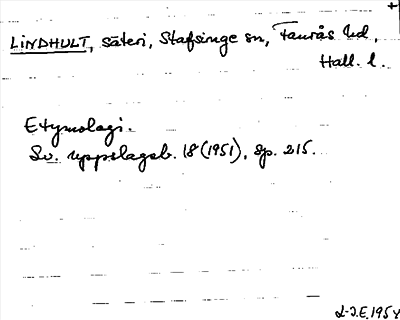 LINDHULT, säteri, Stafsinge sn, Faurås hd,
Hall. l.
Etymologi.
Sv. uppslagsb. 18 (1951), sp. 215.
L-J.E. 1954